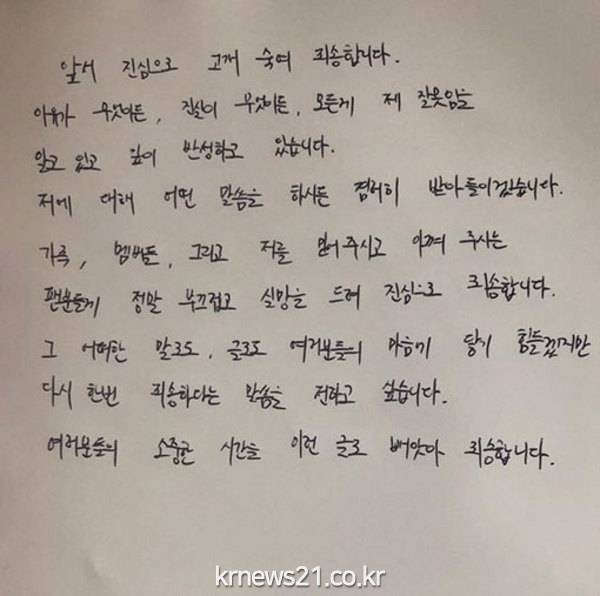 앞서 진심으로 고개 숙여 죄송합니다.
이유가 무엇이든, 진실이 무엇이든, 모든게 제 잘못임을
알고 있고 깊이 반성하고 있습니다.
저에 대해 어떤 말씀을 하시든 겸허히 받아들이겠습니다.
가족, 멤버들, 그리고 저를 믿어주시고 아껴 주시는
팬분들게 정말 부끄럽고 실망을 드려 진심으로 죄송합니다.
그 어떠한 말로도, 글로도 여러분들의 마음에 닿기 힘들겠지만
다시 한번 죄송하다는 말씀을 전하고 싶습니다.
여러분들의 소중한 시간을 이런 글로 빼앗아 죄송합니다.
krnews21.co.kr